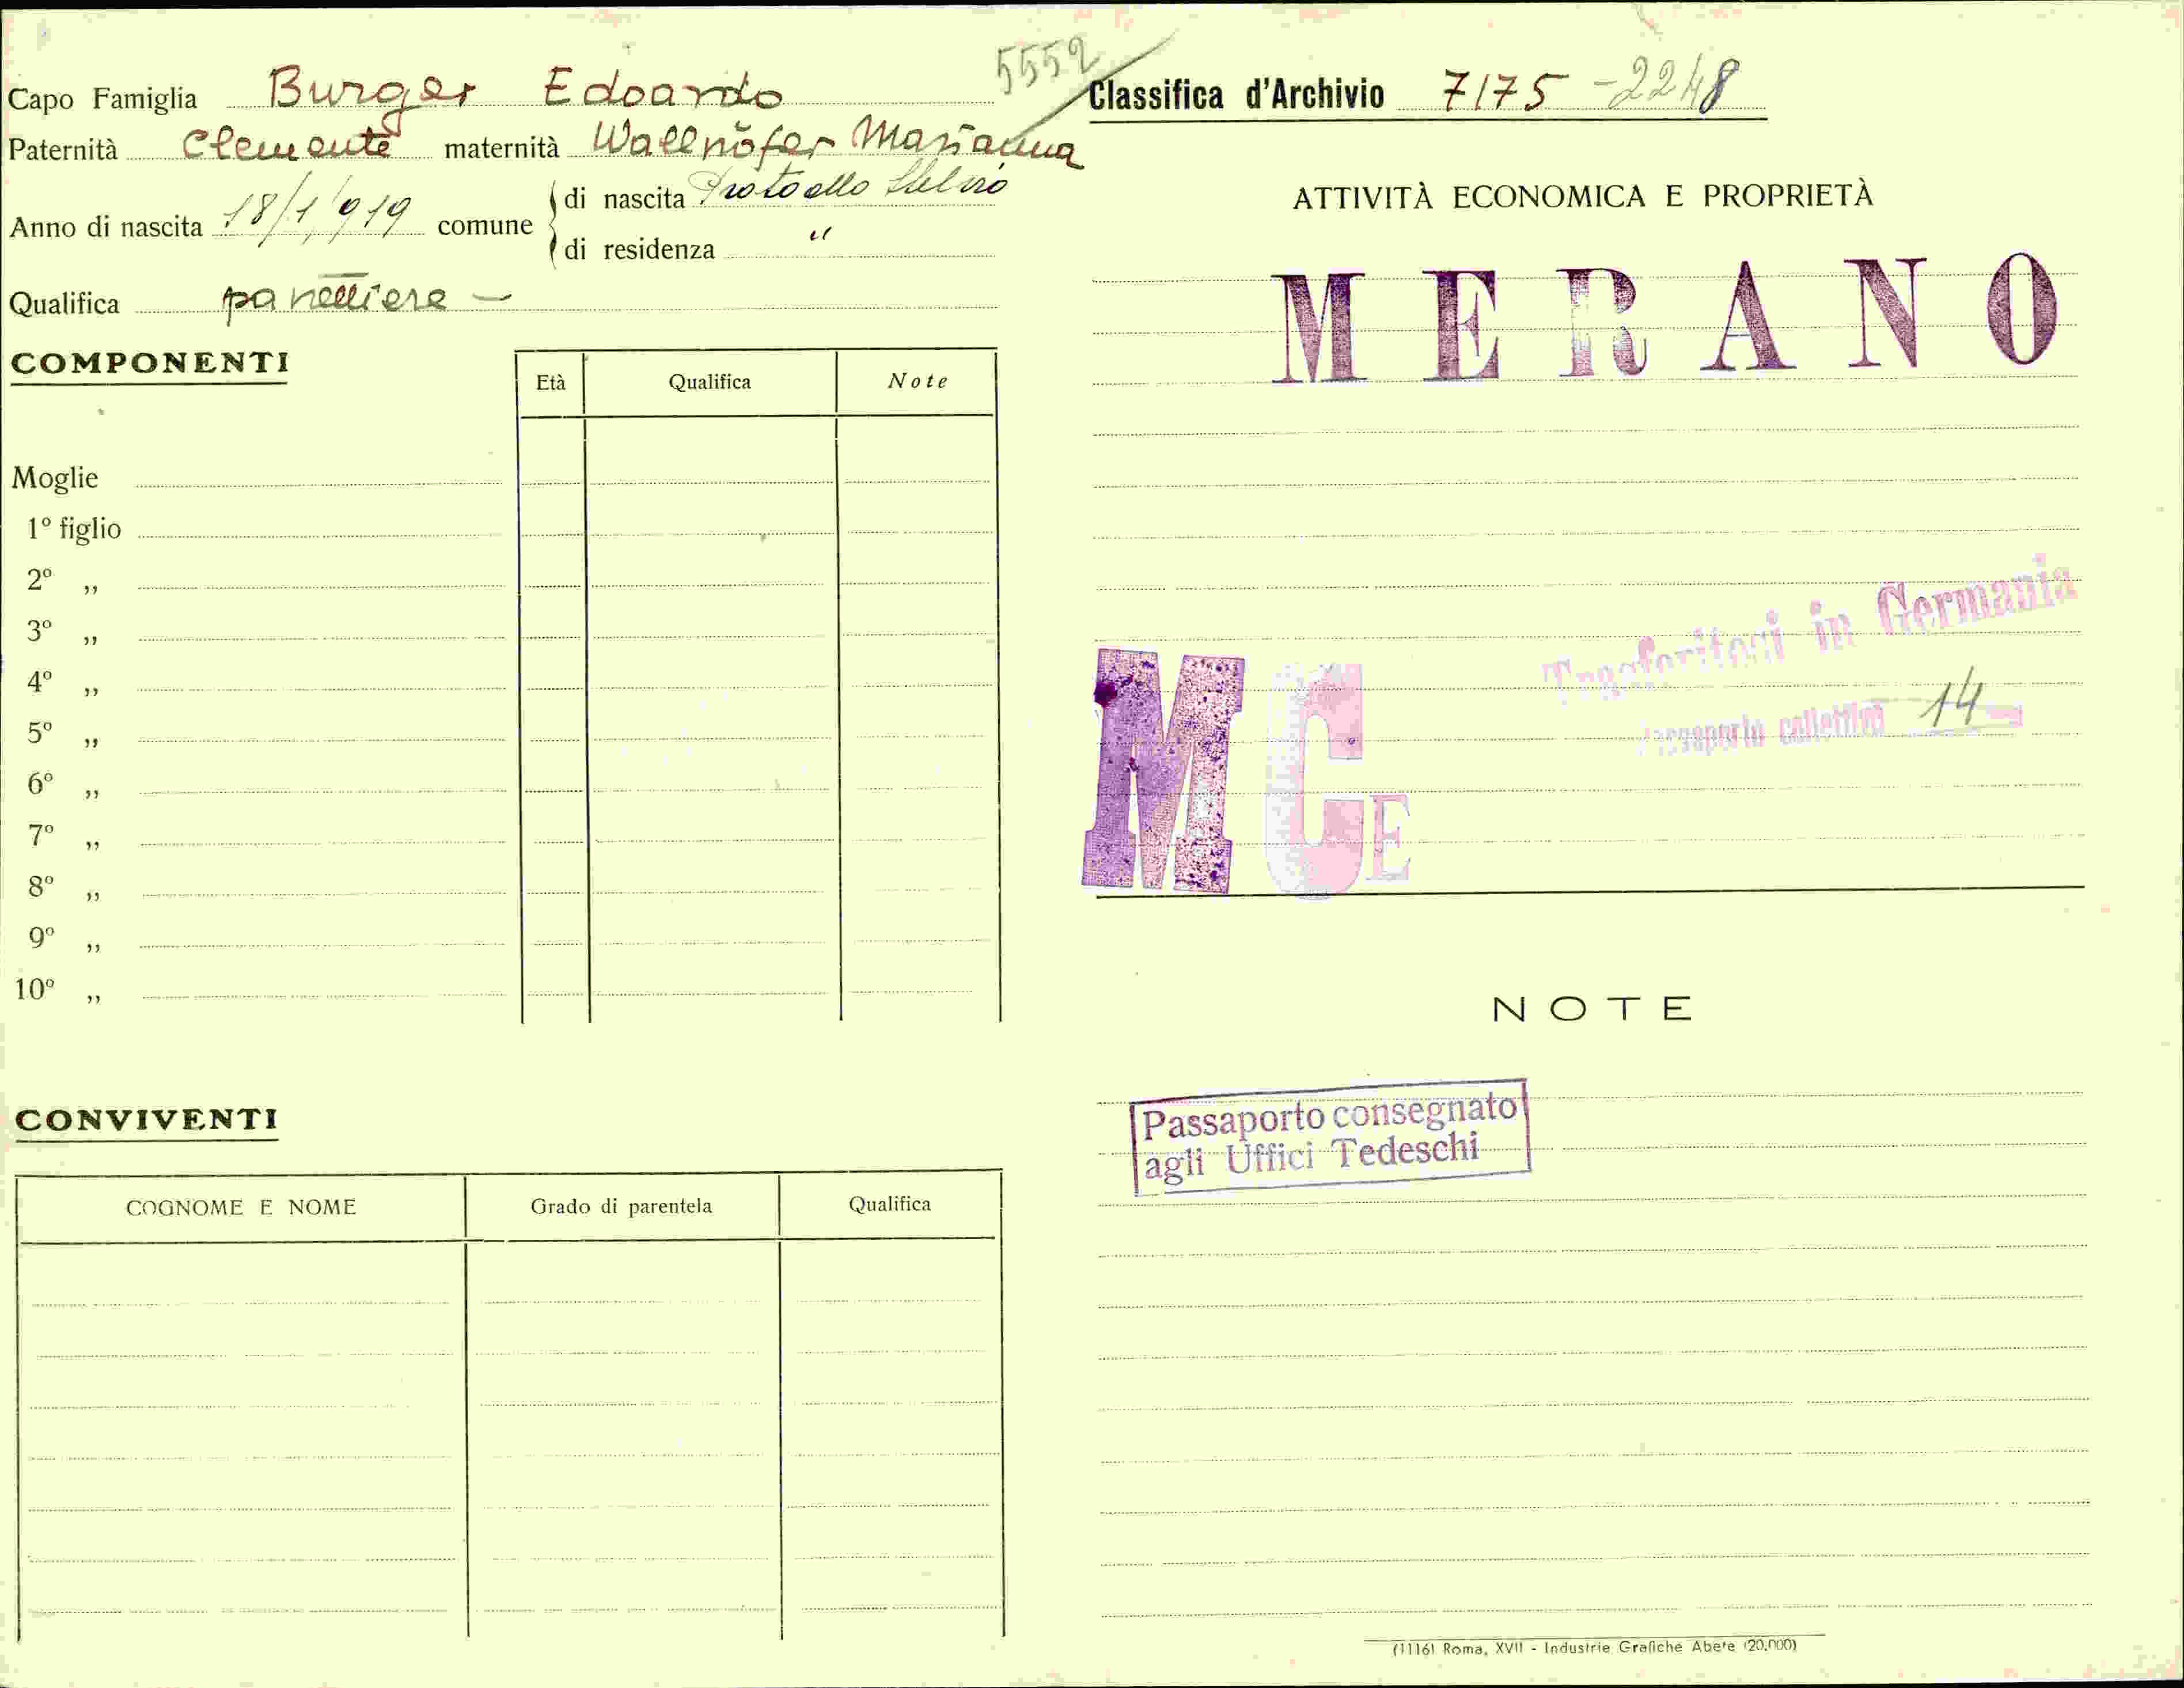 5552
Capo Famiglia Burger Edoardo
Paternità Clemente maternità Wallnöfer Marianna
Anno di nascita 18/1/919 comune di nascita Prato allo Stelvio
di residenza "
Qualifica panettiere -
COMPONENTI
Età Qualifica Note
Moglie
1º figlio
2º „
3º „
4º „
5º „
6º „
7º „
8º „
9º „
10º „
CONVIVENTI
COGNOME E NOME Grado di parentela Qualifica
Classifica d'Archivio 7175 -2248
ATTIVITÀ ECONOMICA E PROPRIETÀ
MERANO
Trasferitosi in Germania
Passaporto collettivo 14
MCE
NOTE
Passaporto consegnato
agli Uffici Tedeschi
(1116) Roma, XVII - Industrie Grafiche Abete (20.000)